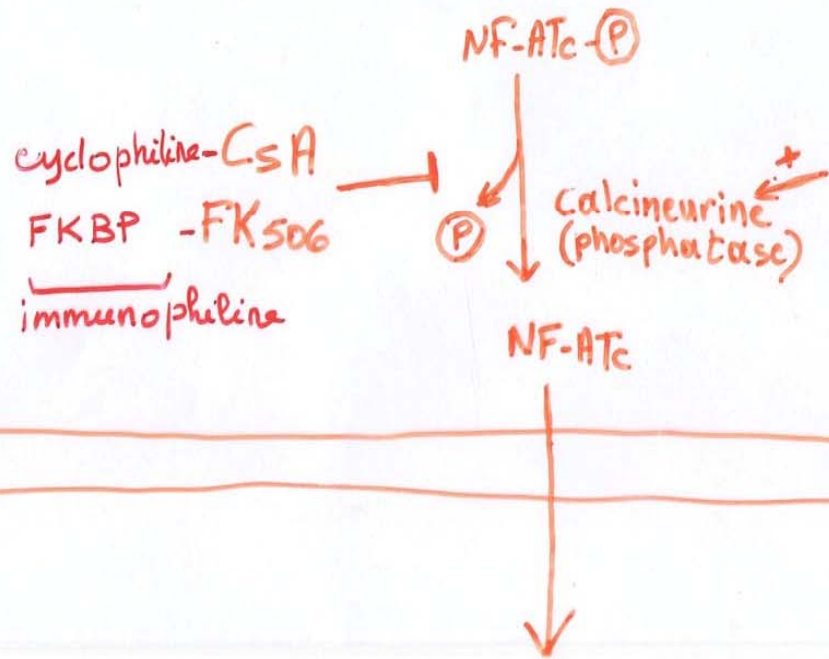 NF-ATc-P
cyclophiline-CsA
FKBP -FK506
immunophiline
P
+
calcineurine
(phosphatase)
NF-ATc